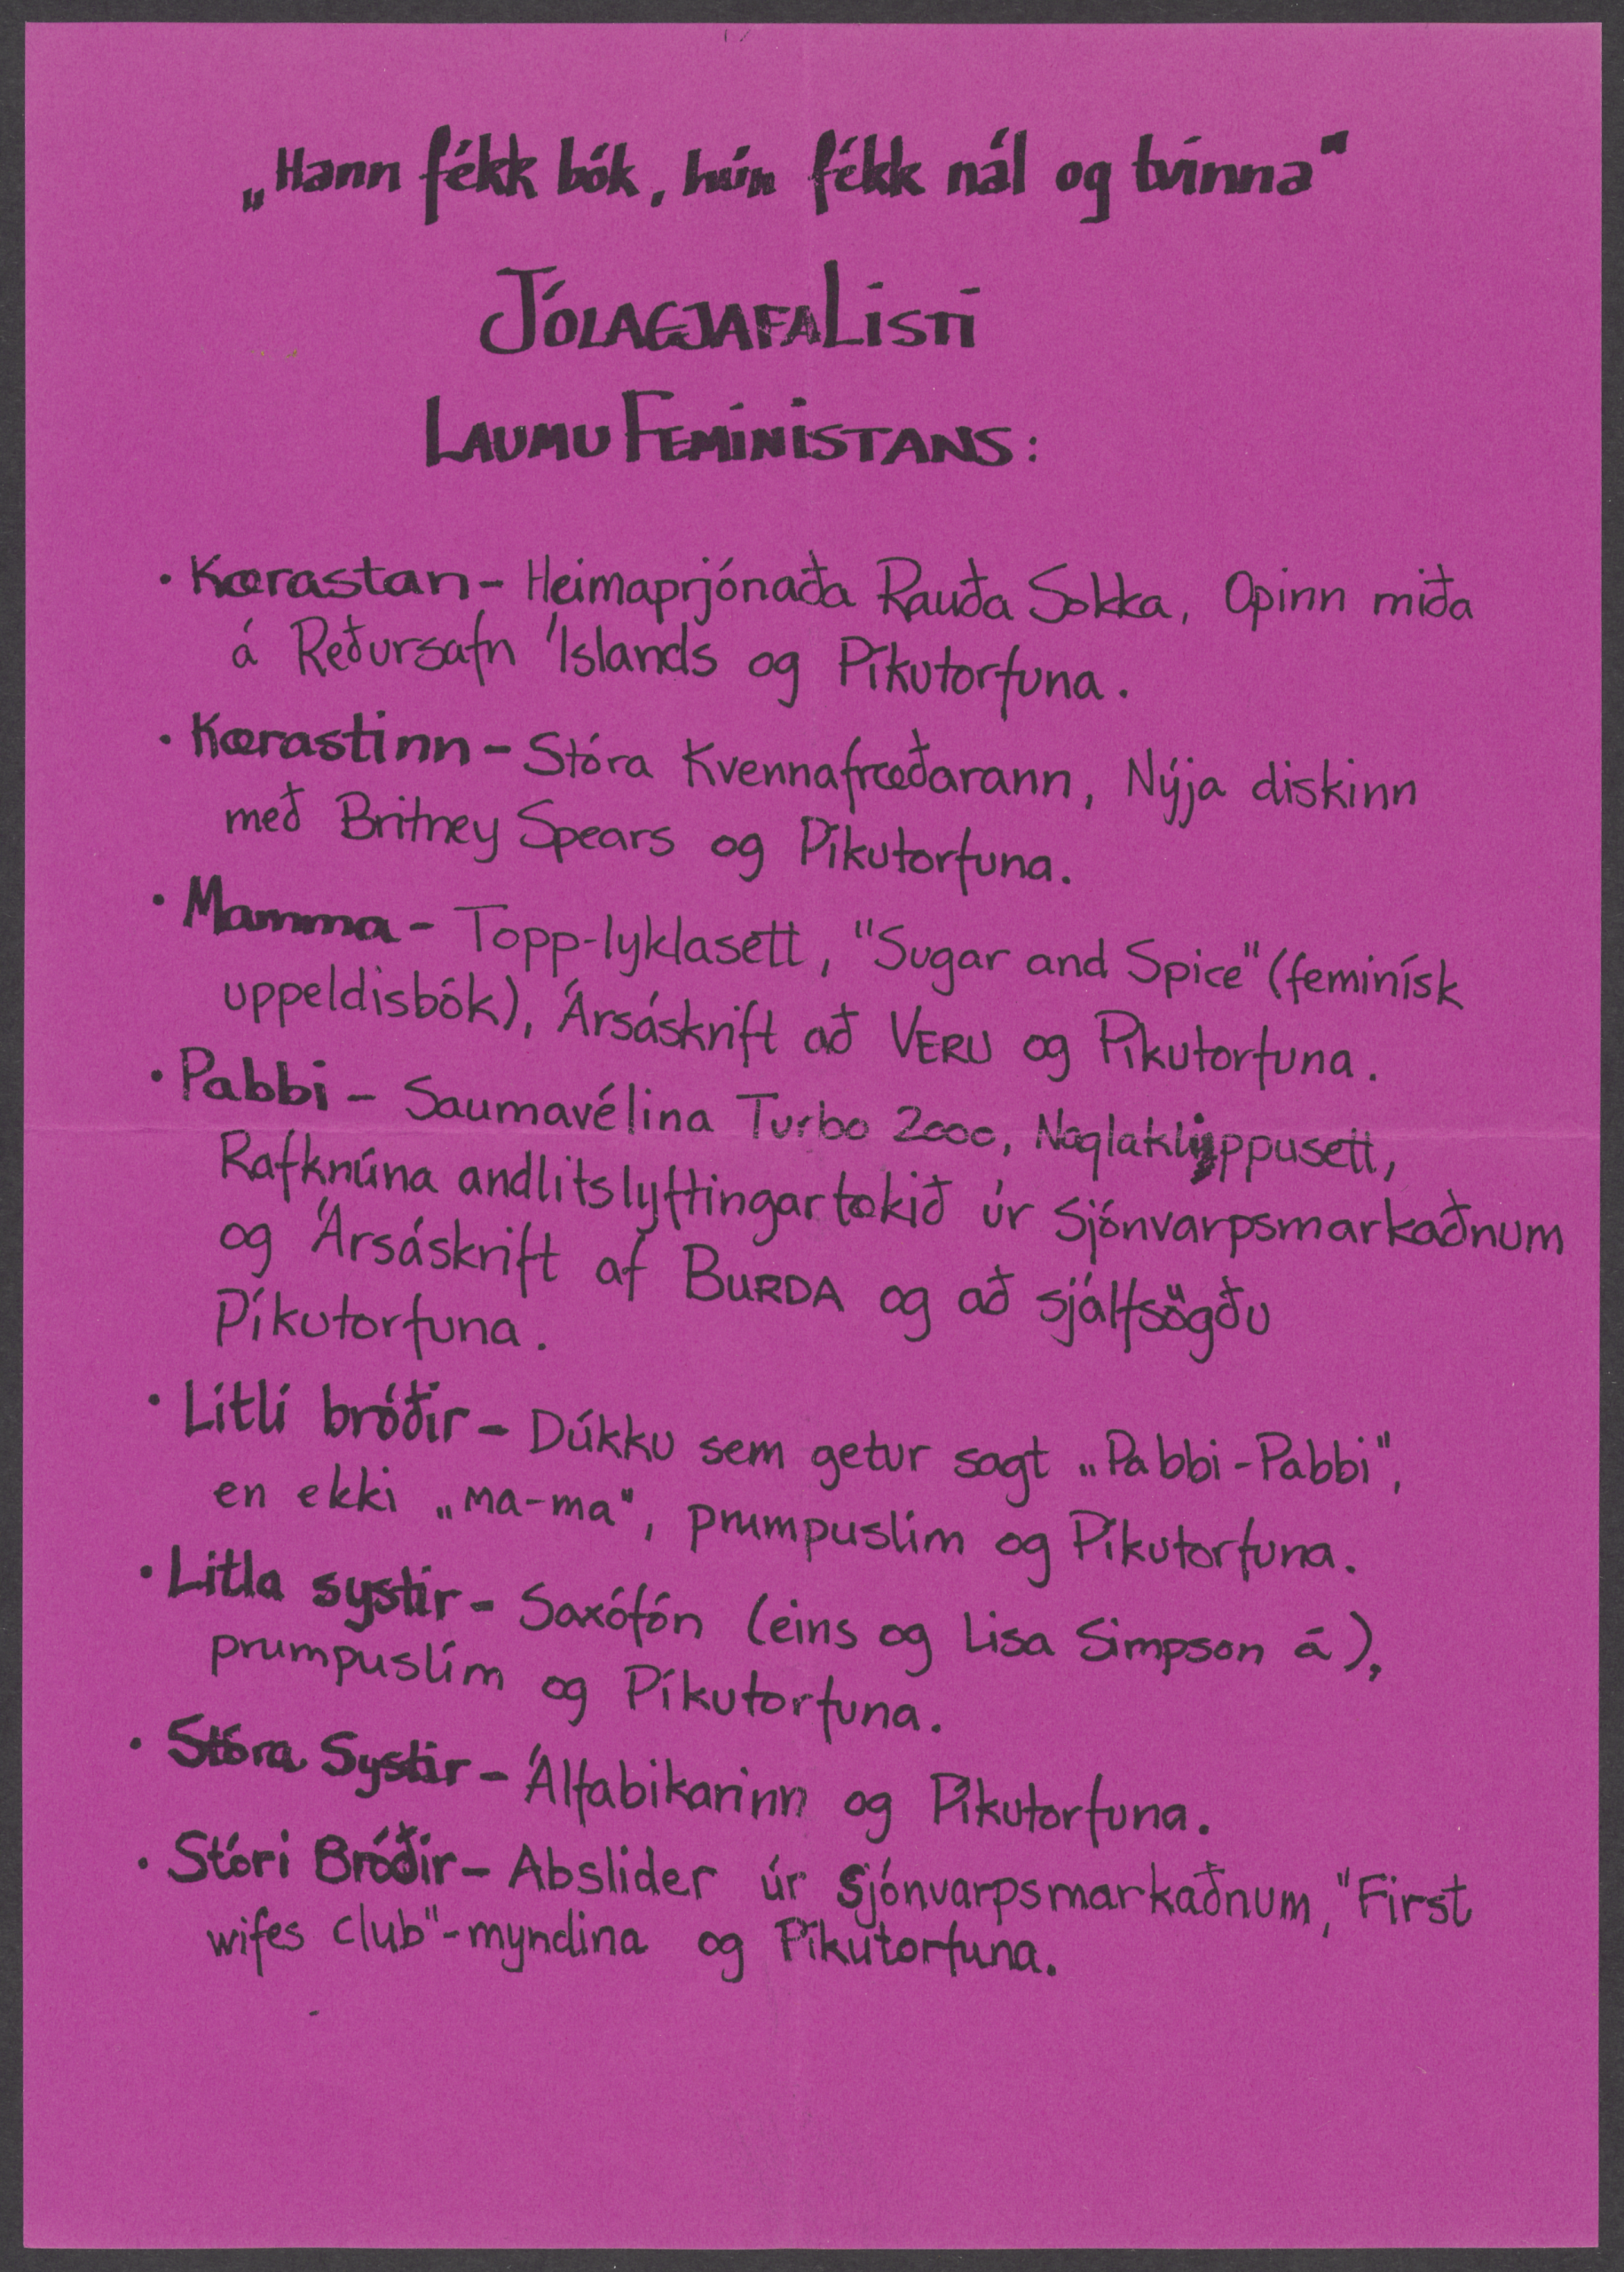 „Hann fékk bók, hún fékk nál og tvinna“
JÓLAGJAFALISTI
LAUMUFEMINISTANS:
· Kærastan - Heimaprjónaða Rauða Sokka, Opinn miða
á Reðursafn Íslands og Píkutorfuna.
· Kærastinn - Stóra Kvennafræðarann, Nýja diskinn
með Britney Spears og Píkutorfuna.
· Mamma - Topp-lyklasett, "Sugar and Spice" (feminísk
uppeldisbók), Ársáskrift að VERU og Píkutorfuna.
· Pabbi - Saumavélina Turbo 2000, Naglaklippusett,
Rafknúna andlitslyftingartækið úr Sjónvarpsmarkaðnum
og Ársáskrift af BURDA og að sjálfsögðu
Píkutorfuna.
· Litli bróðir - Dúkku sem getur sagt „Pabbi-Pabbi",
en ekki „ma-ma", prumpuslím og Píkutorfuna.
· Litla systir - Saxófón (eins og Lisa Simpson á),
prumpuslím og Píkutorfuna.
· Stóra Systir - Álfabikarinn og Píkutorfuna.
· Stóri Bróðir - Abslider úr Sjónvarpsmarkaðnum, "First
wifes club"-myndina og Píkutorfuna.